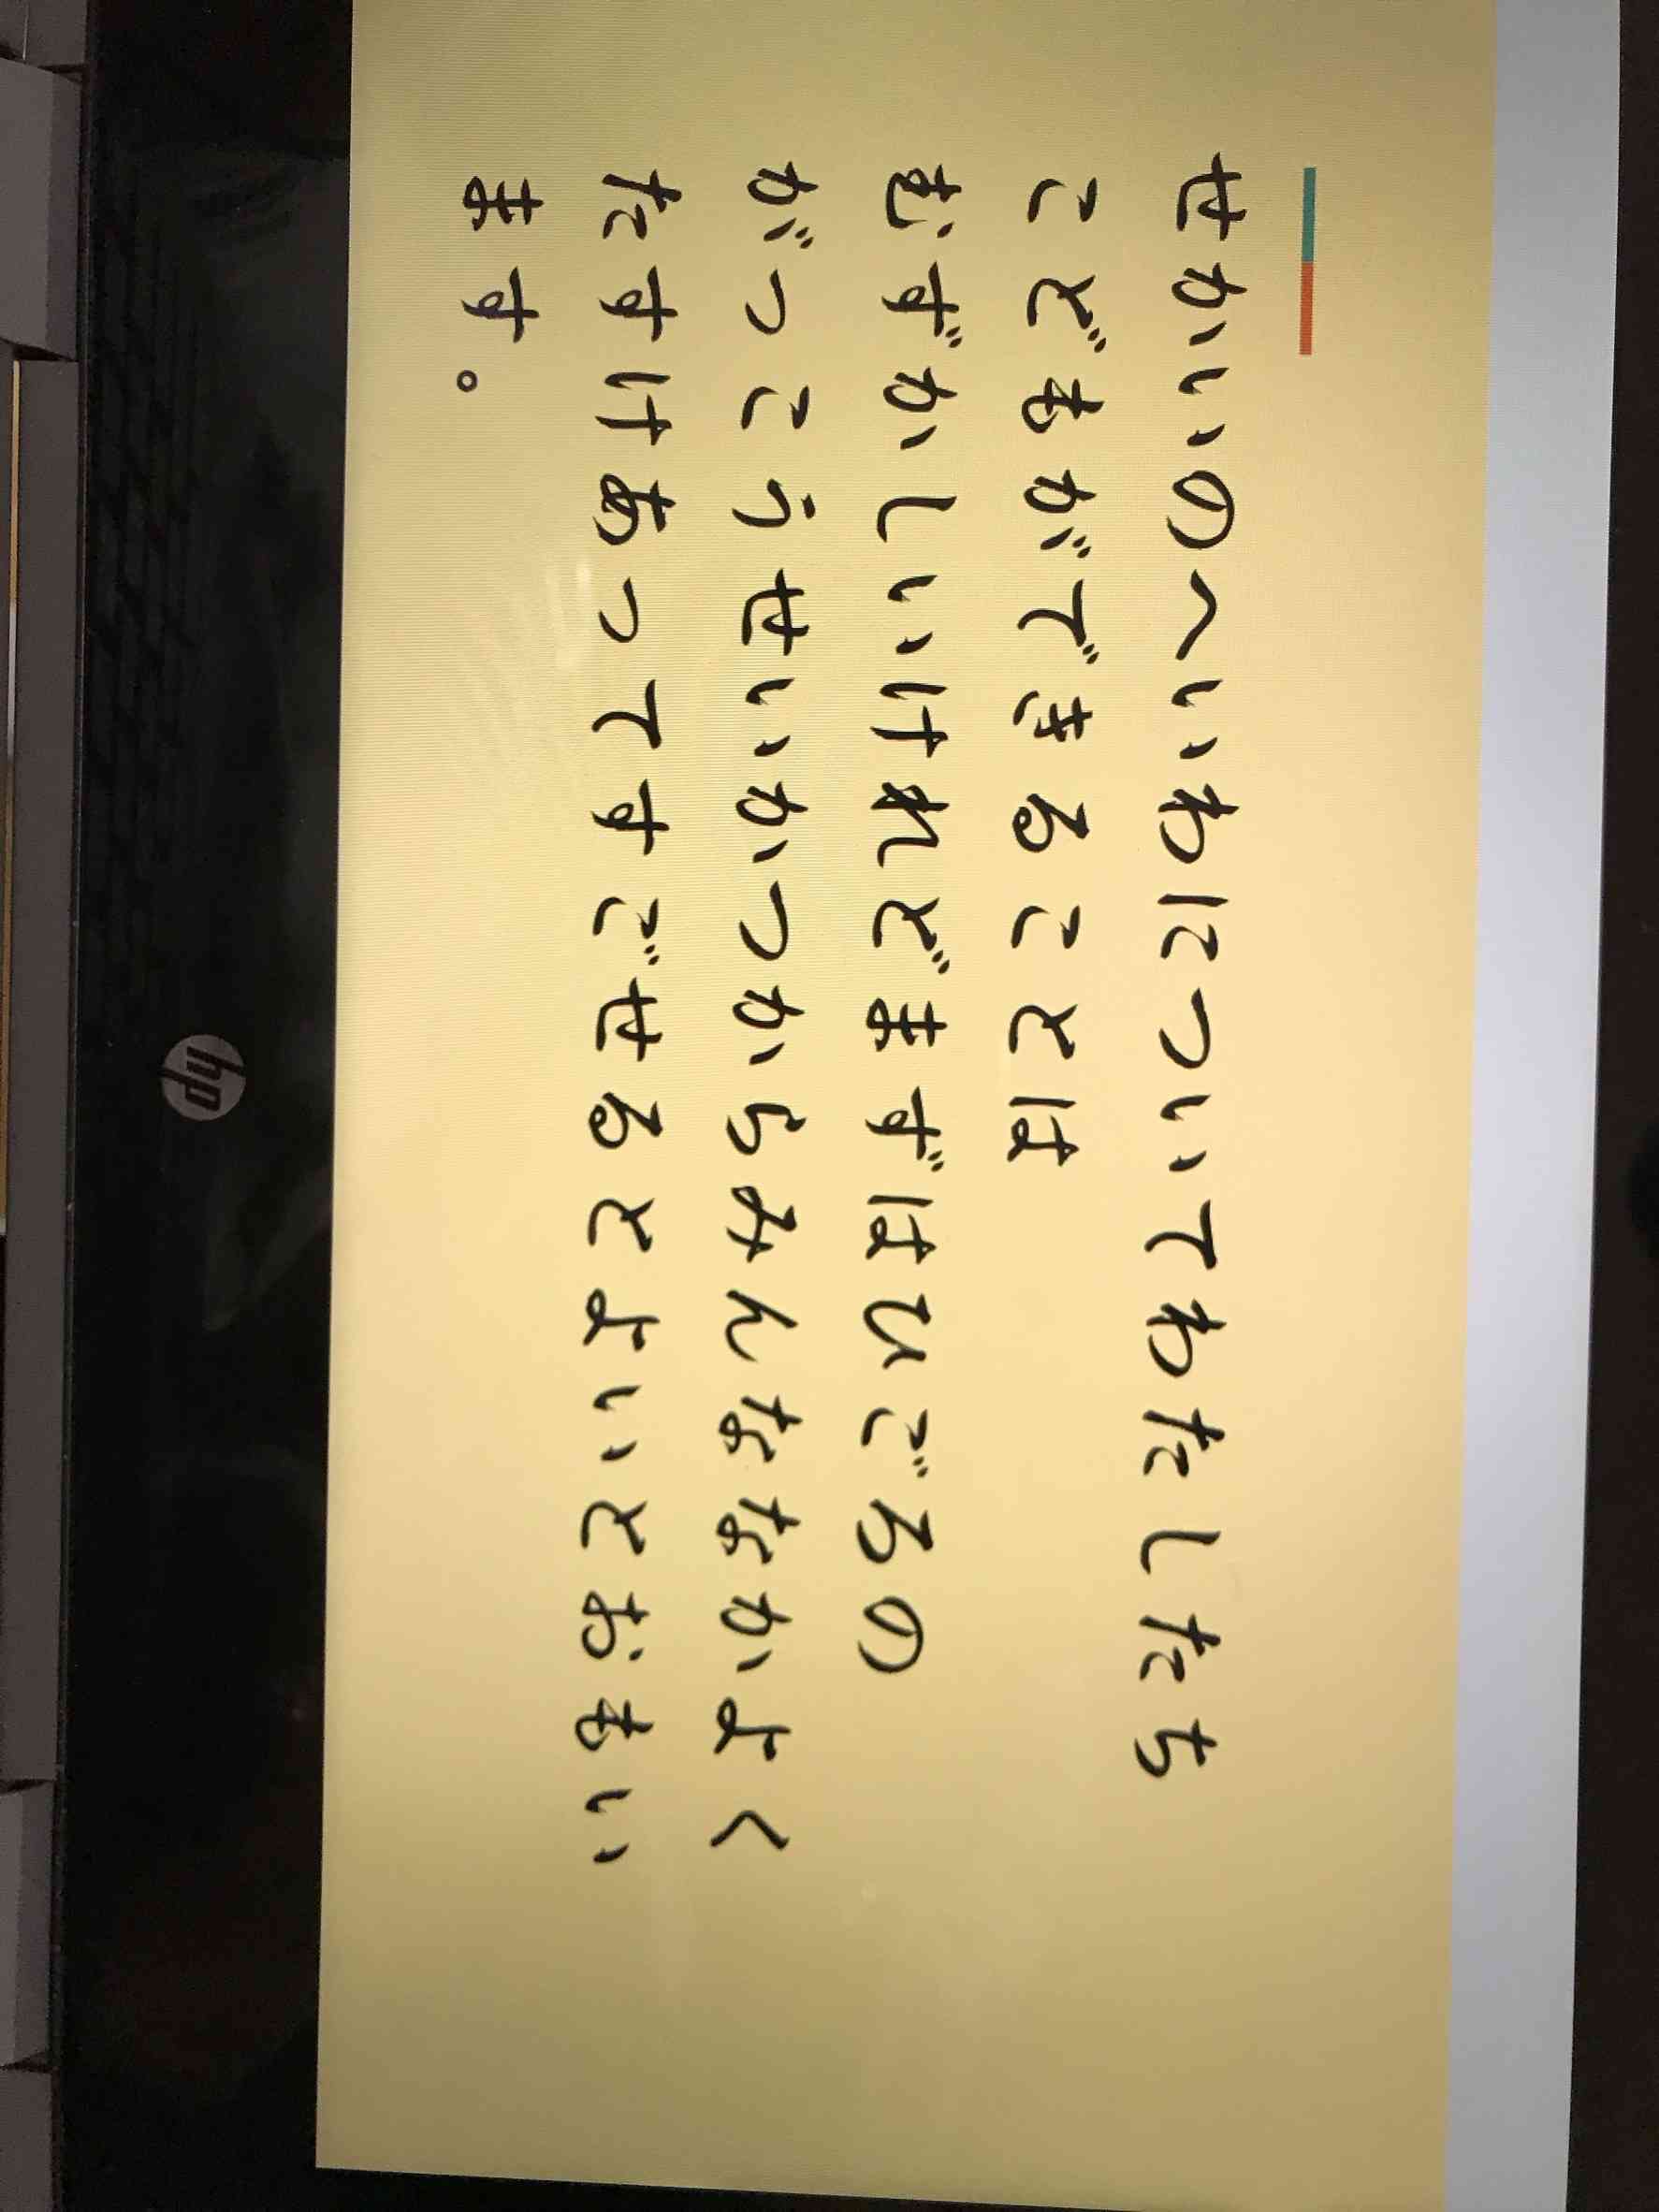 せかいのへいわについてわたしたち
こどもができることは
むずかしいけれどまずはひごろの
がっこうせいかつからみんななかよく
たすけあってすごせるとよいとおもい
ます。
hp